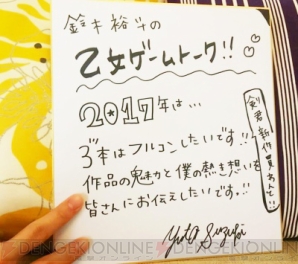 鈴木裕斗の
乙女ゲームトーク!!
2017年は…
3本はフルコンしたいです!!
作品の魅力と僕の熱き想いを
皆さんにお伝えしたいです!!
Yuto Suzuki
DENGEKIONLINE
DENGEKIONLINE